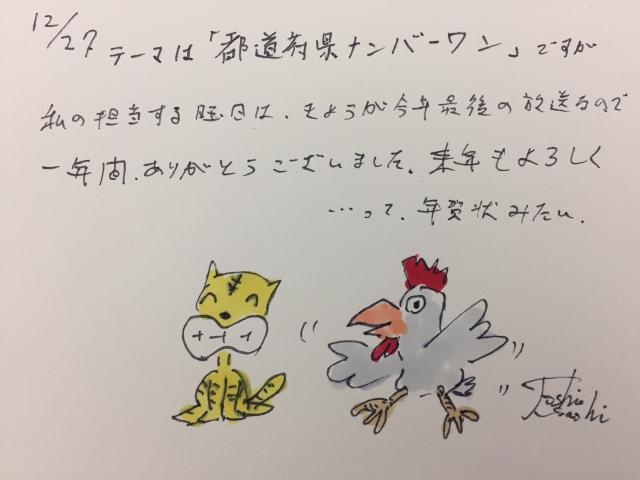 12/27 テーマは「都道府県ナンバーワン」ですが
私の担当する曜日は、きょうが今年最後の放送なので
一年間、ありがとうございました。来年もよろしく
…って、年賀状みたい。
Toshio